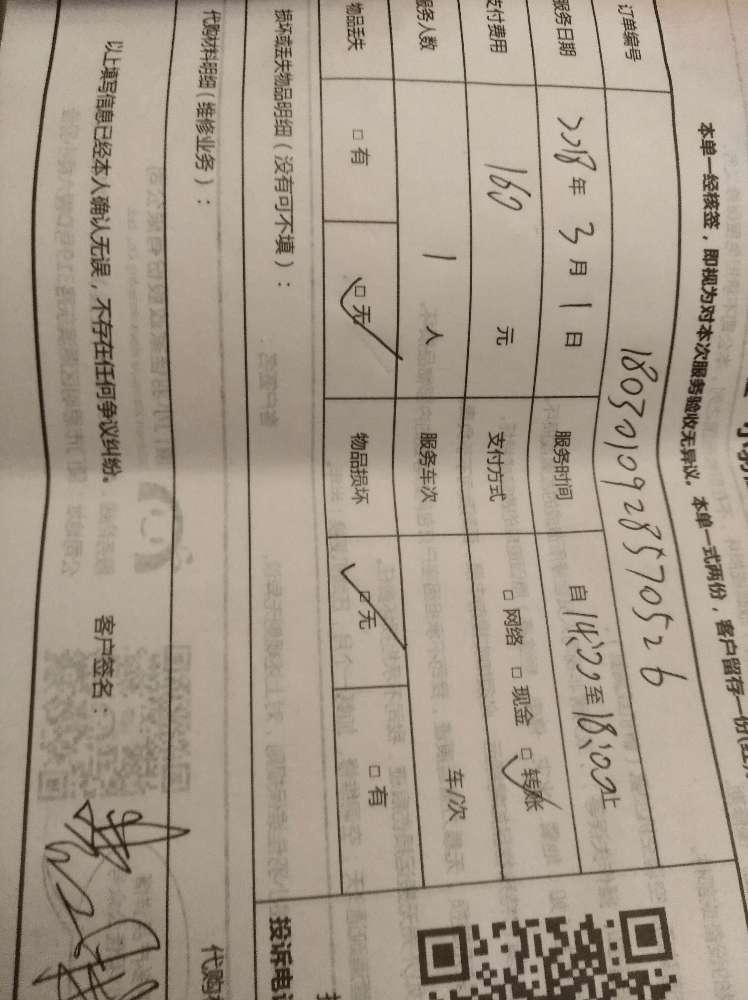 本单一经核签，即视为对本次服务验收无异议。 本单一式两份，客户留存一份
订单编号 1803010928570526
服务日期 2018年 3月 1日 服务时间 自14:00至18:00止
支付费用 160 元 支付方式 □ 网络 □ 现金 □ 转账
服务人数 1 人 服务车次 车/次
物品丢失 □ 有 □ 无 物品损坏 □ 无 □ 有
损坏或丢失物品明细（没有可不填）： 投诉电
代购材料明细（维修业务）： 代购
以上填写信息已经本人确认无误，不存在任何争议纠纷。 客户签名：